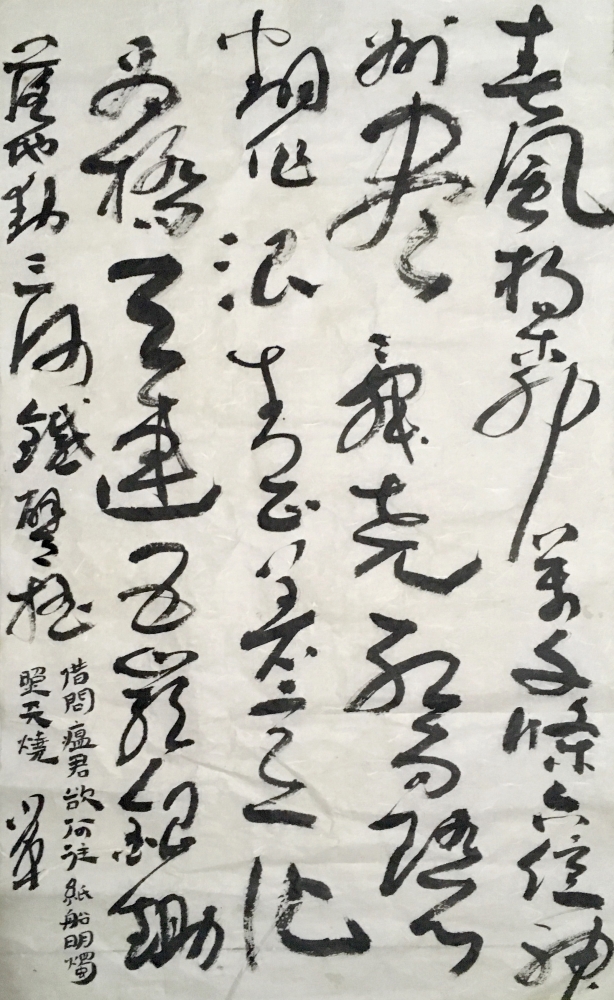 春風楊柳萬千條六億神
州盡舜堯紅雨隨心
翻作浪青山着意化
為橋天連五嶺銀鋤
落地動三河鐵臂搖
借問瘟君欲何往紙船明燭
照天燒